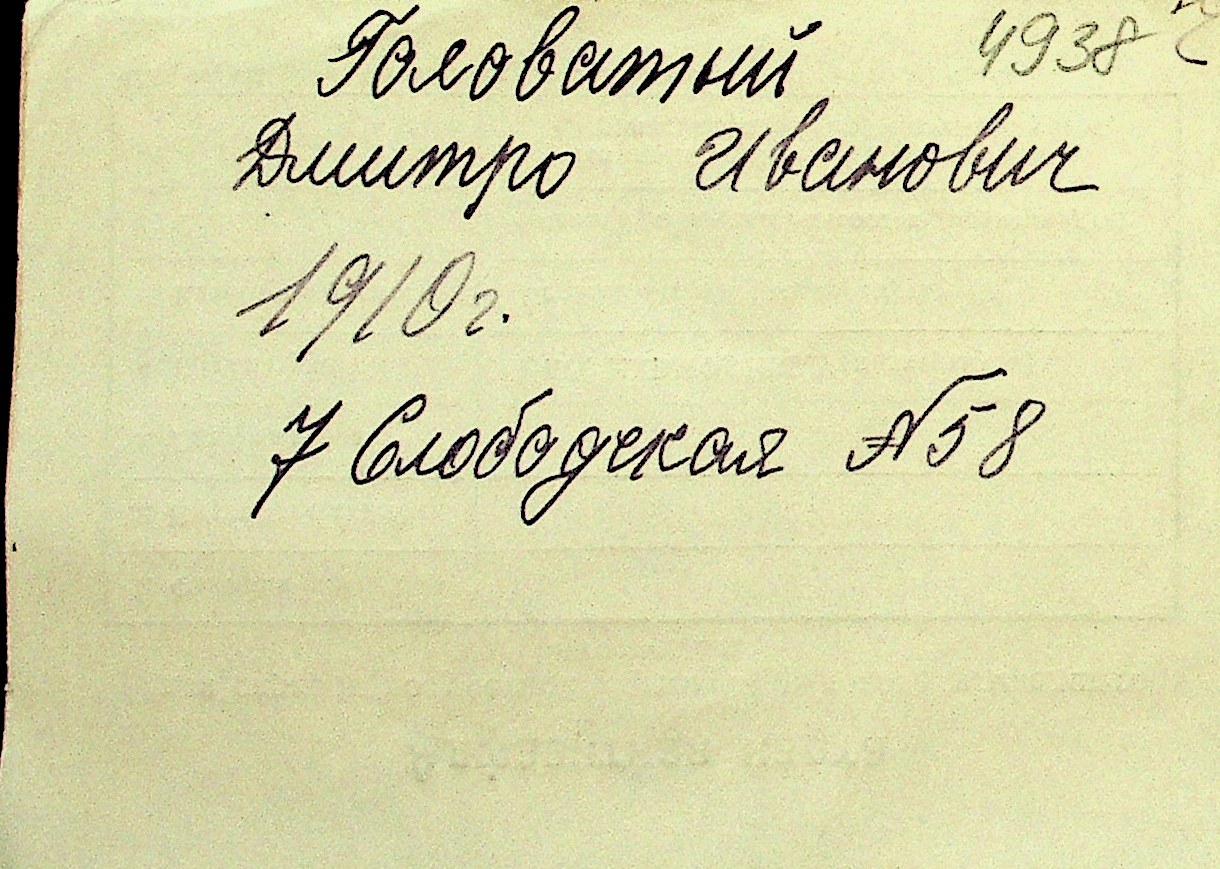 Головатый 4938
Дмитро Иванович
1910г.
7 Слободская №58